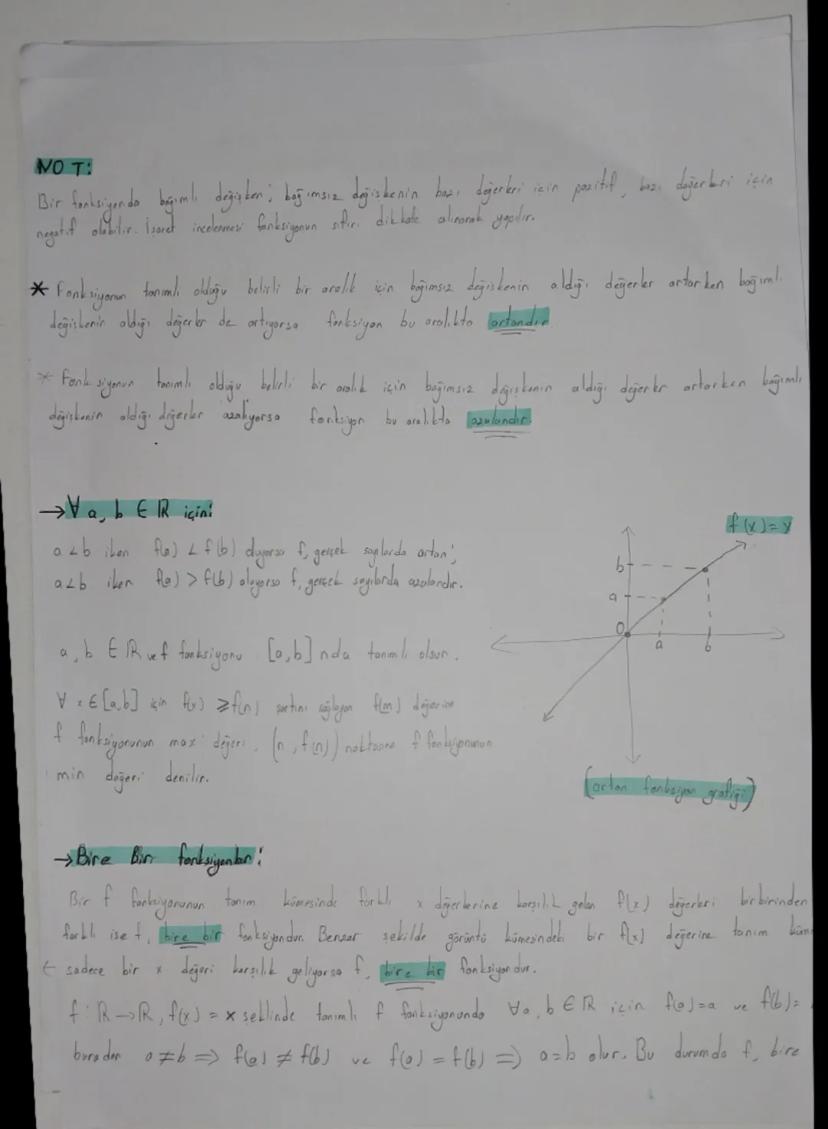 NOT:
Bir fonksiyonda bağımlı değişken; bağımsız değişkenin bazı değerleri için pozitif, bazı değerleri için
negatif olabilir. İşaret incelenmesi fonksiyonun sıfırı dikkate alınarak yapılır.
* Fonksiyonun tanımlı olduğu belirli bir aralık için bağımsız değişkenin aldığı değerler artarken bağımlı
değişkenin aldığı değerler de artıyorsa fonksiyon bu aralıkta artandır.
* Fonksiyonun tanımlı olduğu belirli bir aralık için bağımsız değişkenin aldığı değerler artarken bağımlı
değişkenin aldığı değerler azalıyorsa fonksiyon bu aralıkta azalandır.
→∀ a, b ∈ ℝ için:
a < b iken f(a) < f(b) oluyorsa f, gerçek sayılarda artan;
a < b iken f(a) > f(b) oluyorsa f, gerçek sayılarda azalandır.
f(x) = x
b
a
0
a b
a, b ∈ ℝ ve f fonksiyonu [a,b] nda tanımlı olsun.
∀ x ∈ [a,b] için f(x) ≥ f(n) şartını sağlayan f(m) değerine
f fonksiyonunun max değeri, (n, f(n)) noktasına f fonksiyonunun
min değeri denilir.
(artan fonksiyon grafiği)
→ Bire Bir fonksiyonlar:
Bir f fonksiyonunun tanım kümesinde farklı x değerlerine karşılık gelen f(x) değerleri birbirinden
farklı ise f, bire bir fonksiyondur. Benzer şekilde görüntü kümesindeki bir f(x) değerine tanım küm
sadece bir x değeri karşılık geliyorsa f, bire bir fonksiyondur.
f: ℝ→ℝ, f(x) = x şeklinde tanımlı f fonksiyonunda ∀a, b ∈ ℝ için f(a)=a ve f(b)=
buradan a ≠ b ⇒ f(a) ≠ f(b) ve f(a) = f(b) ⇒ a=b olur. Bu durumda f, bire